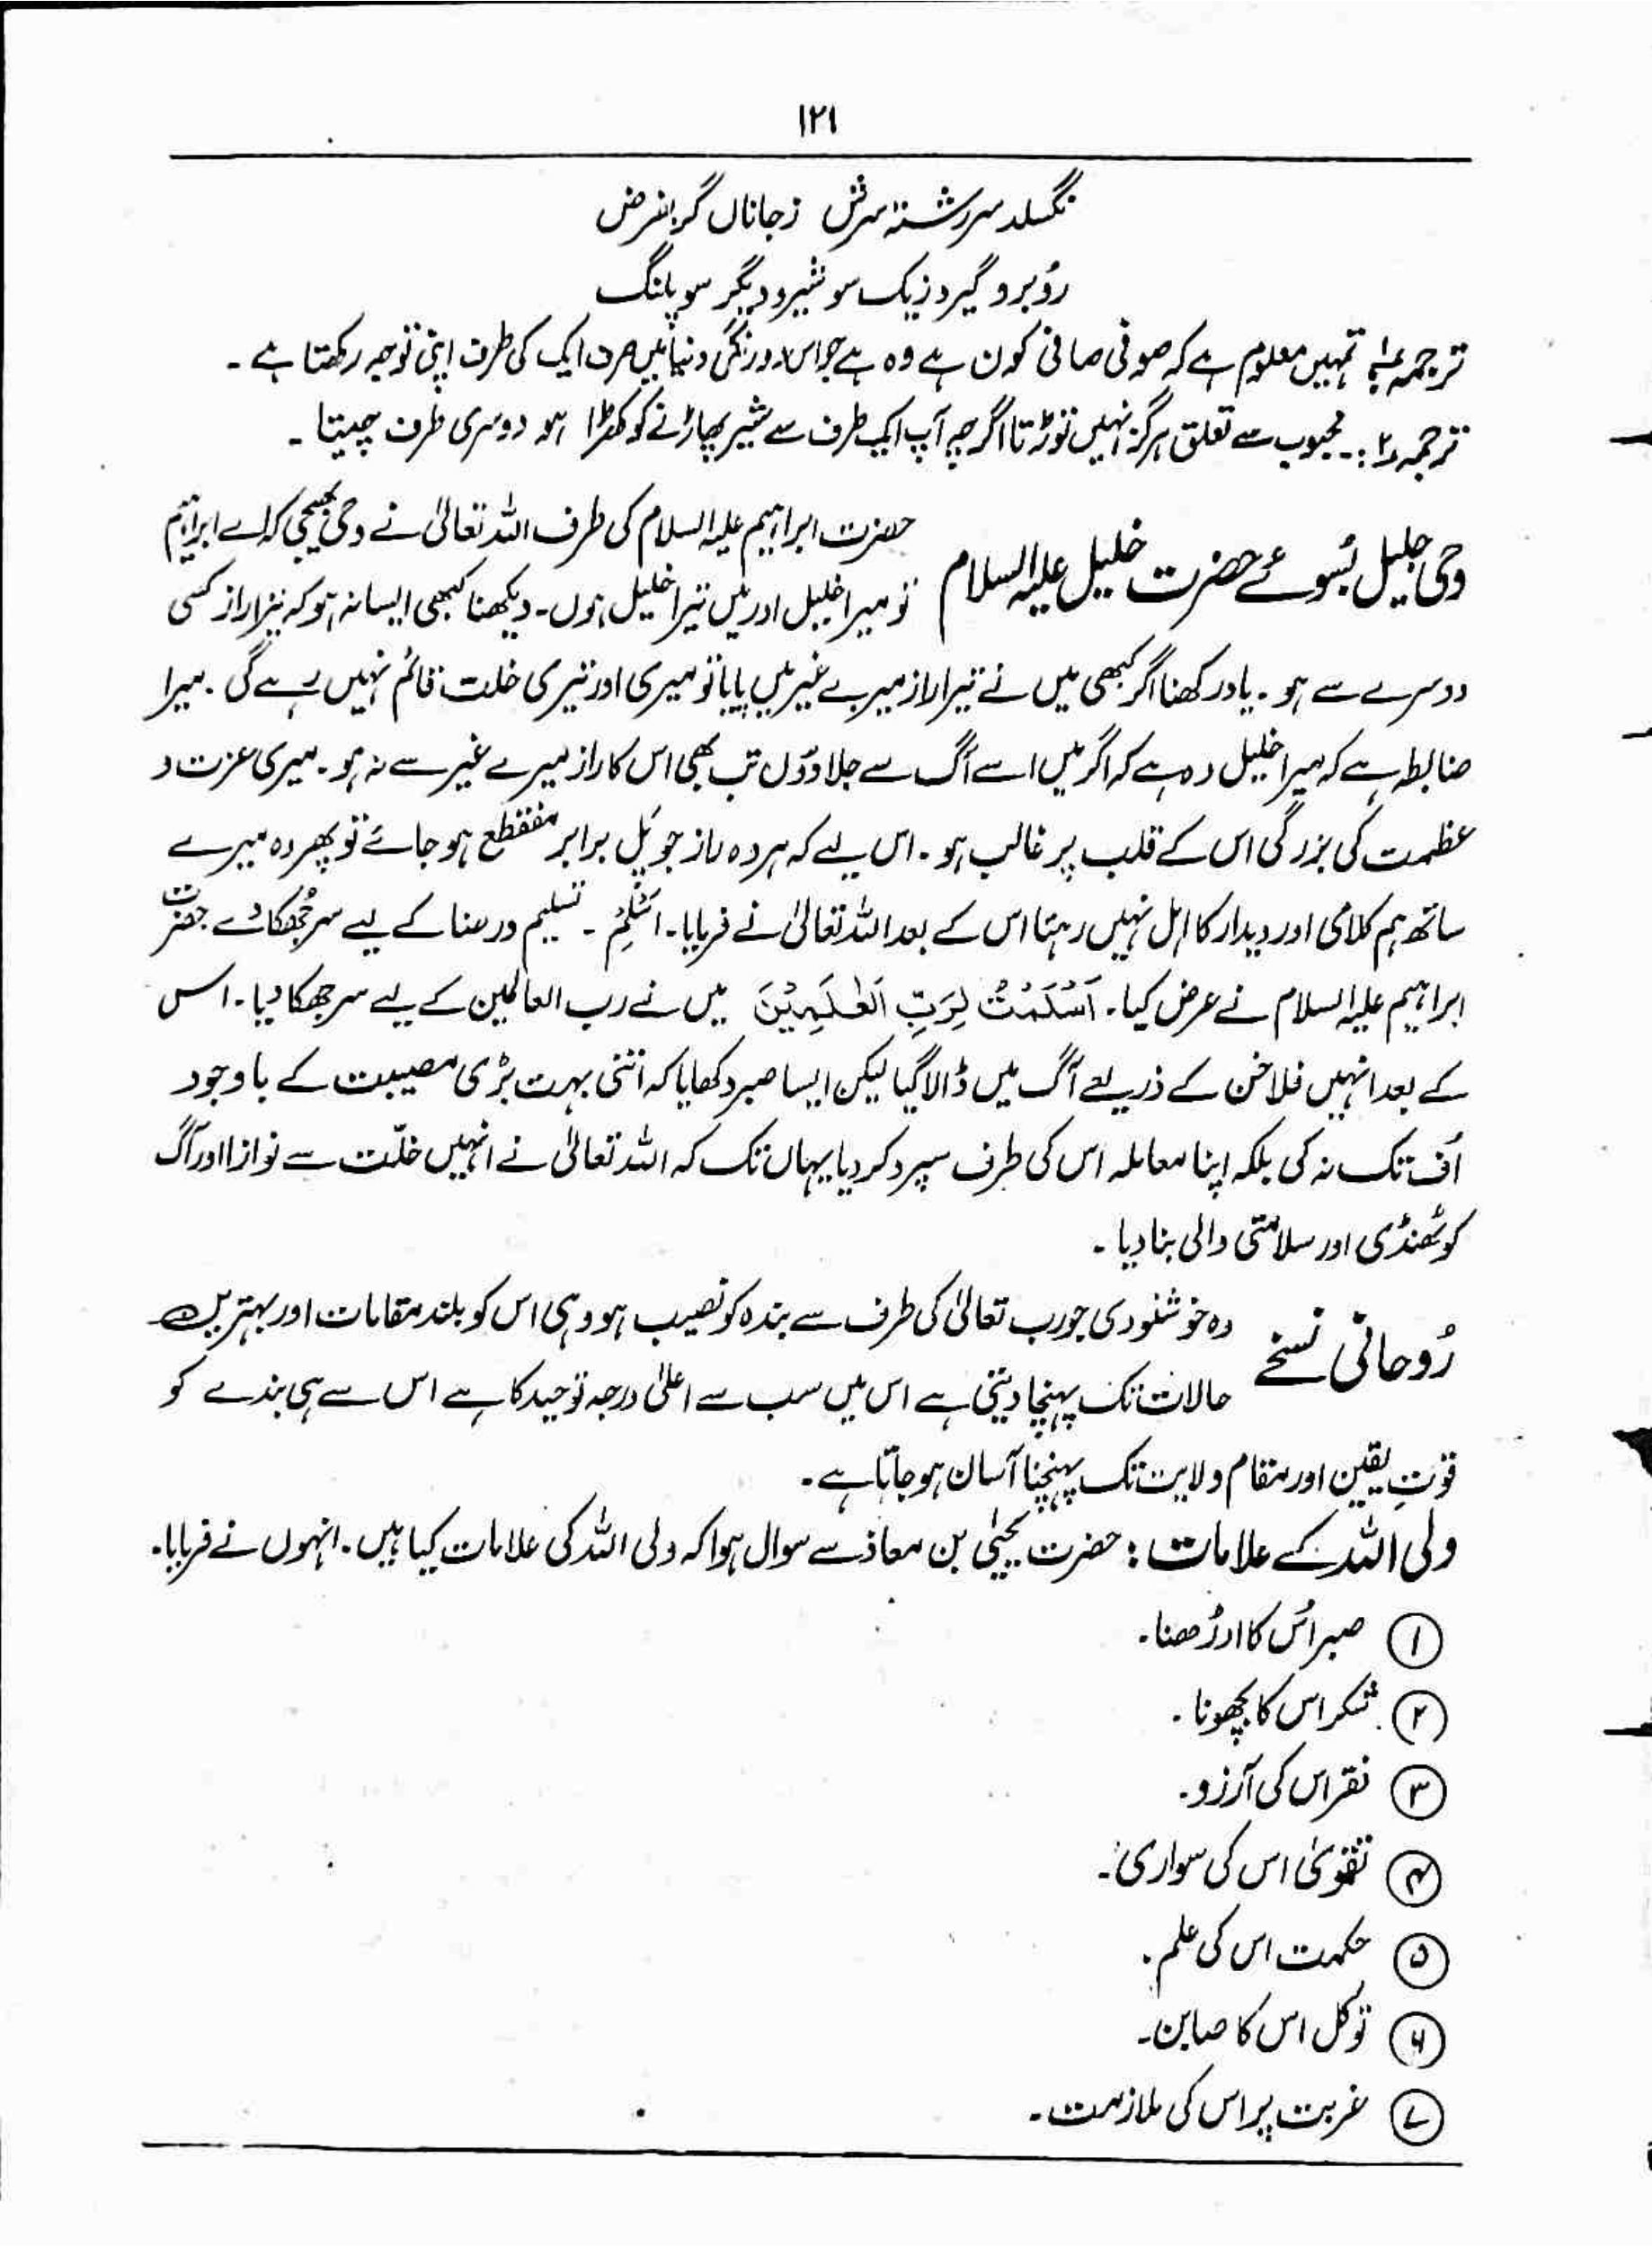 ۱۲۱
نگسلد سررشتہ سرش زجاناں گر بفرض
رُوبرو گیرد زیک سو شیر و دیگر سو پلنگ
ترجمہ ۱: تمہیں معلوم ہے کہ صوفی صافی کون ہے وہ ہے جو اس دورنگی دنیا میں صرف ایک کی طرف اپنی توجہ رکھتا ہے ۔
ترجمہ ۲:۔ محبوب سے تعلق ہرگز نہیں توڑتا اگرچہ آپ ایک طرف سے شیر پھاڑنے کو کھڑا ہو دوسری طرف چیتا ۔
وحی جلیل بُسوئے حضرت خلیل علیہ السلام
حضرت ابراہیم علیہ السلام کی طرف اللہ تعالیٰ نے وحی بھیجی کہ اے ابراہیم
تو میرا خلیل اور میں تیرا خلیل ہوں۔ دیکھنا کبھی ایسا نہ ہو کہ تیرا راز کسی
دوسرے سے ہو ۔ یاد رکھنا اگر کبھی میں نے تیرا راز میرے غیر میں پایا تو میری اور تیری خلت قائم نہیں رہے گی ۔ میرا
ضابطہ ہے کہ میرا خلیل وہ ہے کہ اگر میں اسے آگ سے جلا دوں تب بھی اس کا راز میرے غیر سے نہ ہو ۔ میری عزت و
عظمت کی بزرگی اس کے قلب پر غالب ہو ۔ اس لیے کہ ہر وہ راز جو پَل برابر منقطع ہو جائے تو پھر وہ میرے
ساتھ ہم کلامی اور دیدار کا اہل نہیں رہتا اس کے بعد اللہ تعالیٰ نے فرمایا۔ اَسْلِمْ ۔ تسلیم و رضا کے لیے سر جُھکا دے حضرت
ابراہیم علیہ السلام نے عرض کیا۔ اَسْلَمْتُ لِرَبِّ الْعٰلَمِیْنَ میں نے رب العالمین کے لیے سر جھکا دیا۔ اس
کے بعد انہیں فلاخن کے ذریعے آگ میں ڈالا گیا لیکن ایسا صبر دکھایا کہ اتنی بہت بڑی مصیبت کے باوجود
اُف تک نہ کی بلکہ اپنا معاملہ اس کی طرف سپرد کر دیا یہاں تک کہ اللہ تعالیٰ نے انہیں خلّت سے نوازا اور آگ
کو ٹھنڈی اور سلامتی والی بنا دیا ۔
رُوحانی نسخے
وہ خوشنودی جو رب تعالیٰ کی طرف سے بندہ کو نصیب ہو وہی اس کو بلند مقامات اور بہترین
حالات تک پہنچا دیتی ہے اس میں سب سے اعلیٰ درجہ توحید کا ہے اس سے ہی بندے کو
قوّتِ یقین اور مقام ولایت تک پہنچنا آسان ہو جاتا ہے ۔
ولی اللہ کے علامات : حضرت یحییٰ بن معاذ سے سوال ہوا کہ ولی اللہ کی علامات کیا ہیں ۔ انہوں نے فرمایا۔
۱ صبر اُس کا اوڑھنا ۔
۲ شکر اس کا بچھونا ۔
۳ فقر اس کی آرزو ۔
۴ تقویٰ اس کی سواری ۔
۵ حکمت اس کی علم ۔
۶ توکل اس کا صابن ۔
۷ غربت پر اس کی ملازمت ۔